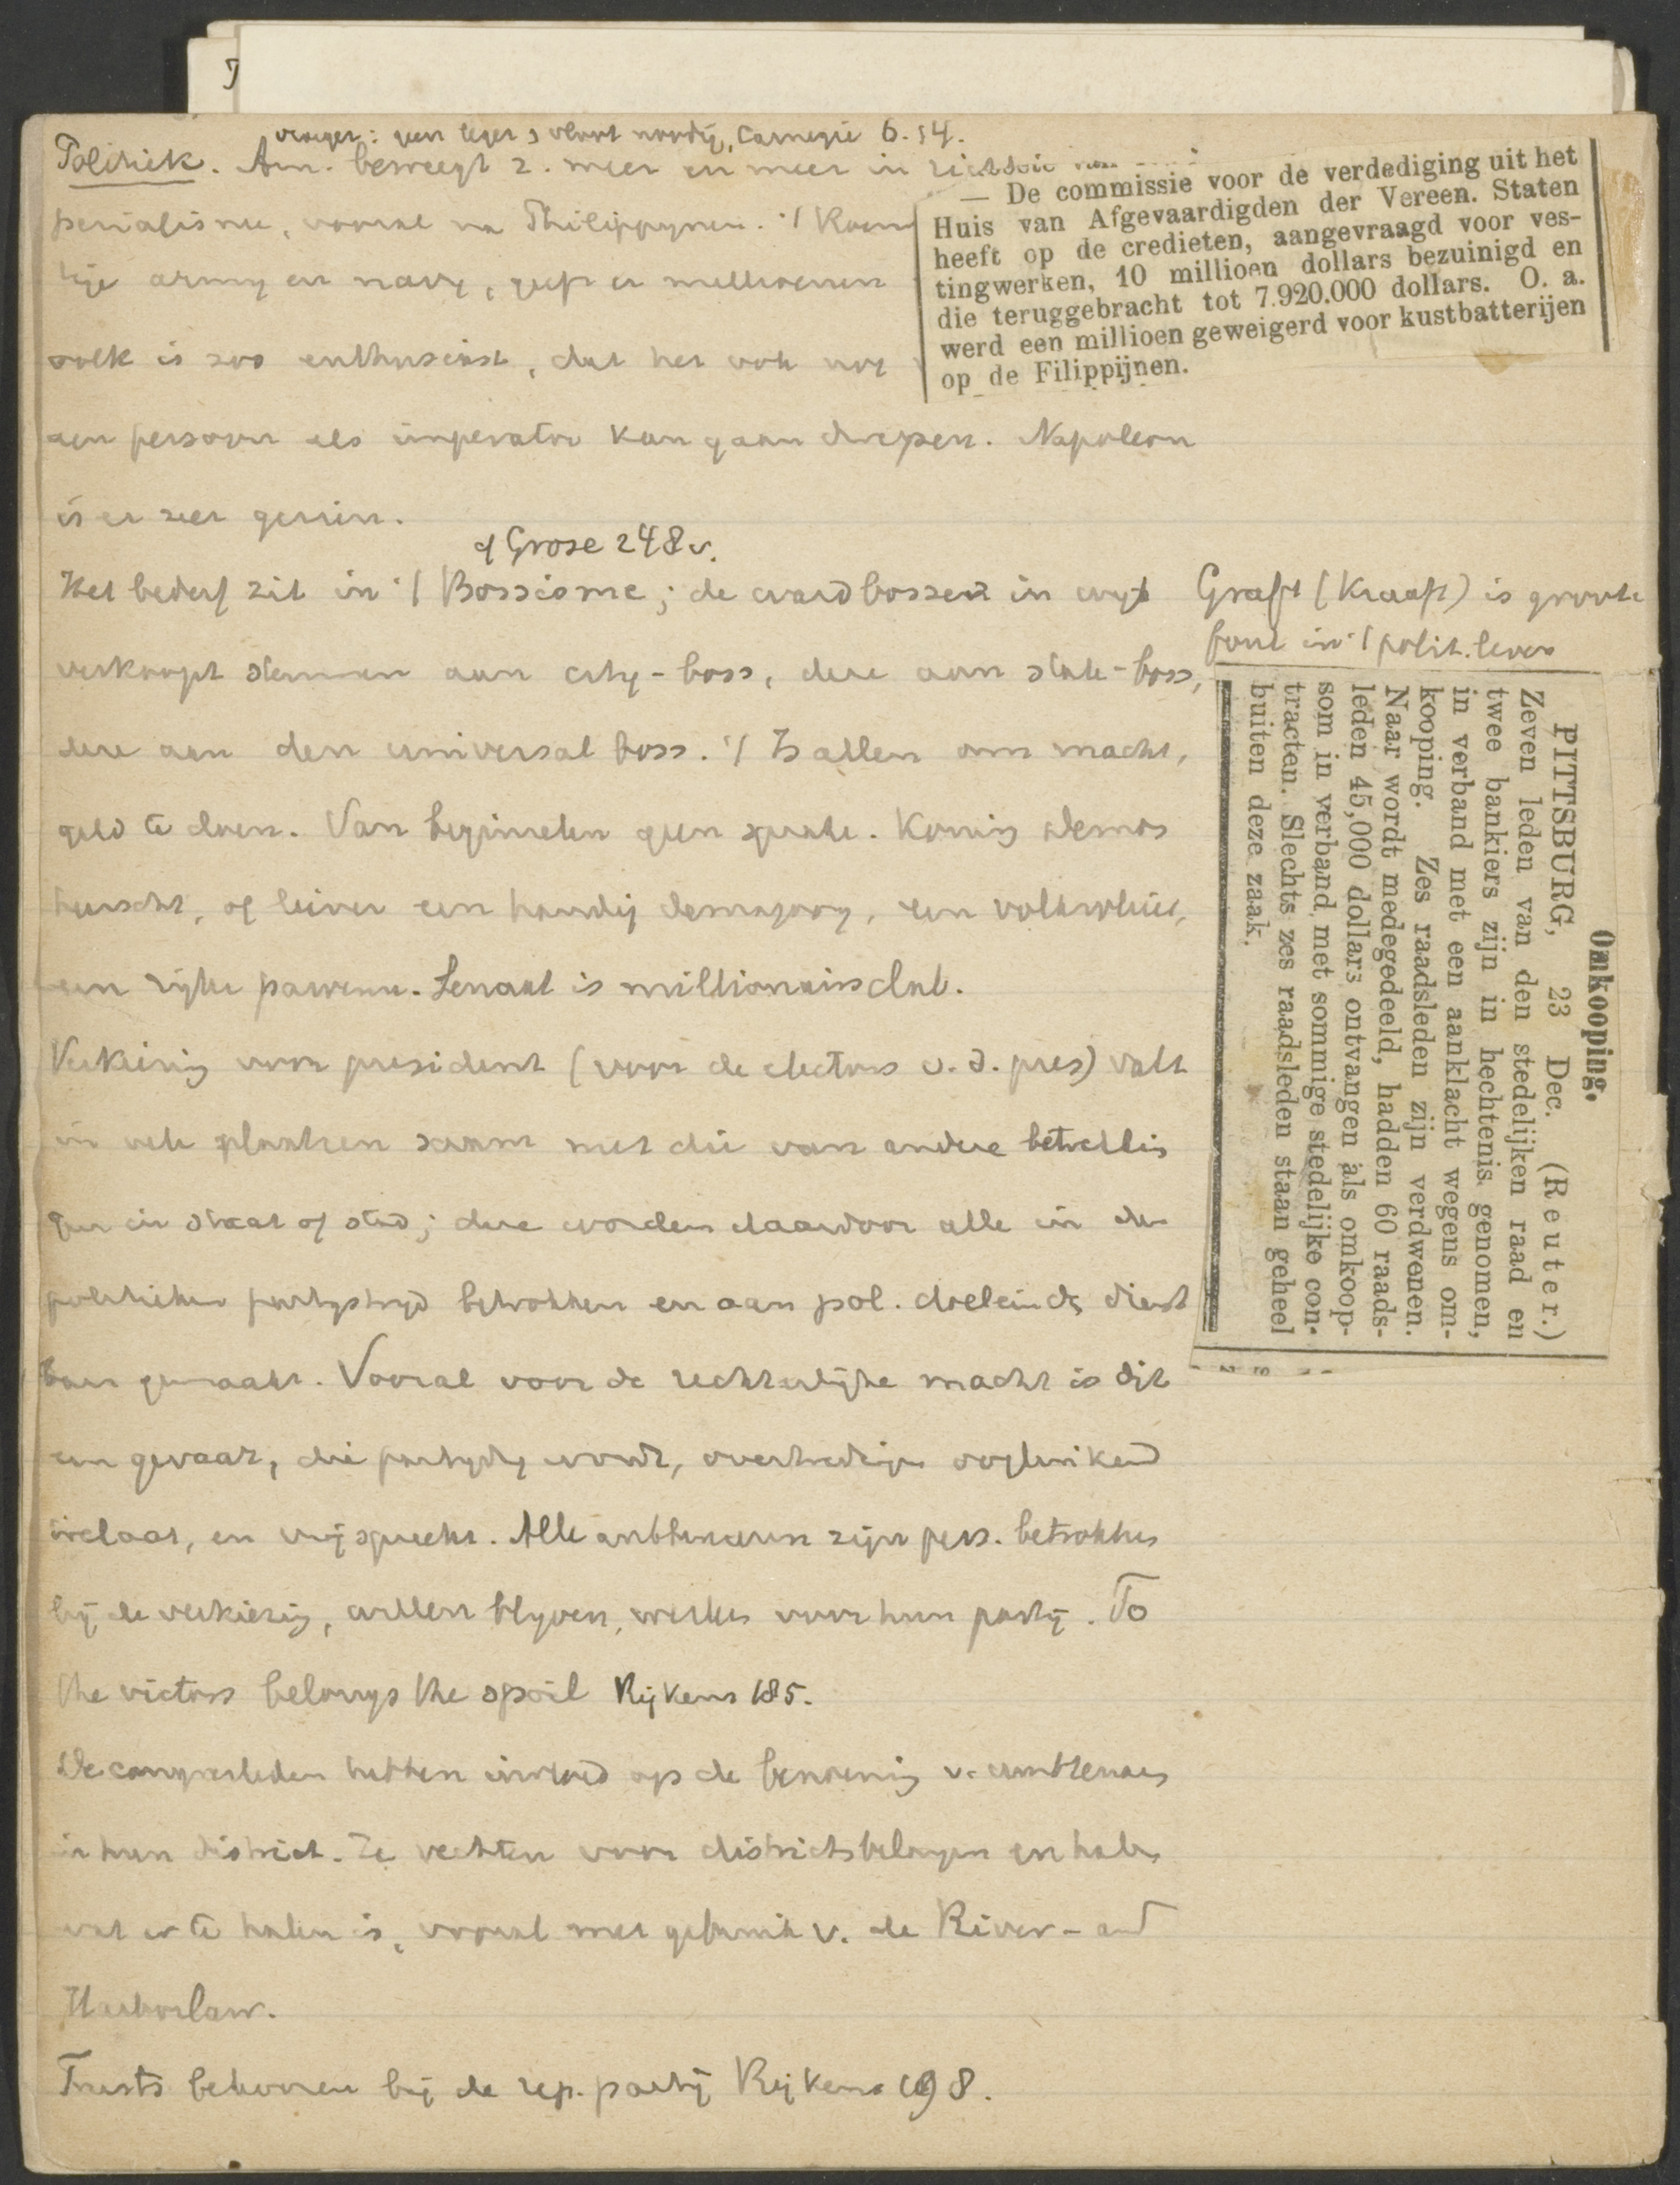 vroeger: geen leger & vloot noodig, Carnegie 6. 54.
Politiek. Am. beweegt z. meer en meer in richting van
perialisme, vooral na Philippynen. 't Koem
lije army en navy, geeft er millioenen
volk is zoo enthusiast, dat het ook nog
een persoon als imperator kan gaan dwepen. Napoleon
is er zeer gezien.
cf Grose 248 v.
Het bederf zit in 't Bossisme; de wardbossen in wyk
verkoopt stemmen aan city-boss, deze aan state-boss,
deze aan den universal boss. 't Is allen om macht,
geld te doen. Van beginselen geen sprake. Koning demos
heerscht, of liever een handig demagoog, een
een rijke parvenu. Senaat is millionairsclub.
Verkiezing voor president (voor de electors v. d. pres) valt
in vele plaatsen saam met die van andere betrekkin
gen in staat of stad; deze worden daardoor alle in den
politieken partystryd betrokken en aan pol. doeleinden dienst
baar gemaakt. Vooral voor de rechterlijke macht is dit
een gevaar, die partydig wordt, overtredingen oogluikend
toelaat, en vrijspreekt. Alle ambtenaren zijn pers. betrokken
bij de verkiezing, willen blyven, werken voor hun partij. To
the victors belongs the spoil Rijkens 185.
De congresleden hebben invloed op de benoeming v. ambtenaren
in hun district. Ze vechten voor districtsbelangen en halen
wat er te halen is, vooral met gebruik v. de River- and
Harborlaw.
Trusts behooren bij de rep. partij Rijkens 198.
— De commissie voor de verdediging uit het
Huis van Afgevaardigden der Vereen. Staten
heeft op de credieten, aangevraagd voor ves-
tingwerken, 10 millioen dollars bezuinigd en
die teruggebracht tot 7.920.000 dollars. O. a.
werd een millioen geweigerd voor kustbatterijen
op de Filippijnen.
Graft (Kraaft) is groote
fout in 't polit. leven
Omkooping.
PITTSBURG, 23 Dec. (Reuter.)
Zeven leden van den stedelijken raad en
twee bankiers zijn in hechtenis genomen,
in verband met een aanklacht wegens om-
kooping. Zes raadsleden zijn verdwenen.
Naar wordt medegedeeld, hadden 60 raads-
leden 45,000 dollars ontvangen als omkoop-
som in verband met sommige stedelijke con-
tracten. Slechts zes raadsleden staan geheel
buiten deze zaak.